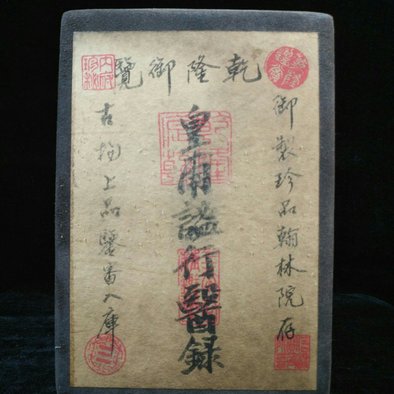 乾隆御覽
御製珍品翰林院存
皇甫謐行醫録
古物上品鑒入庫